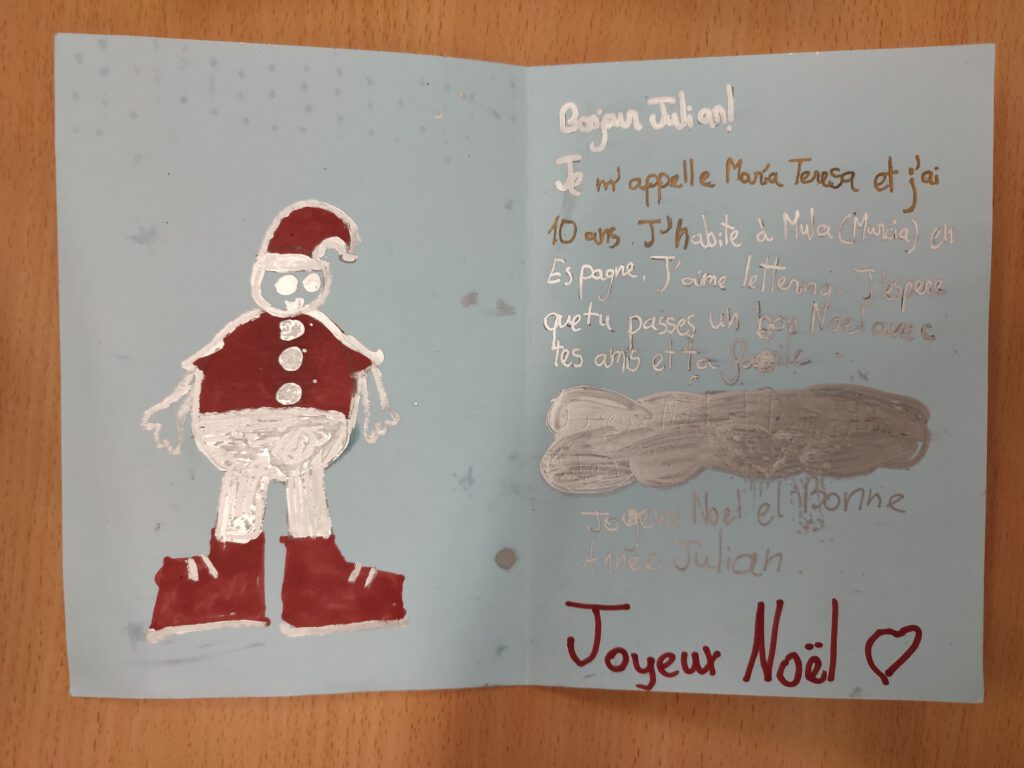 Bonjour Julian!
Je m'appelle María Teresa et j'ai
10 ans. J'habite à Mula (Murcia) en
Espagne. J'aime lettering. J'espere
que tu passes un bon Noël avec
tes amis et ta famile
Joyeux Noël et Bonne
Année Julian
Joyeux Noël